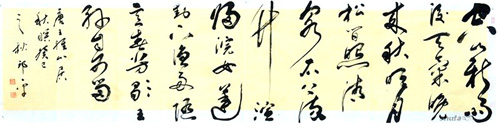 空山新雨
後天氣晚
來秋明月
松間照清
泉石上流
竹喧
歸浣女蓮
動下漁舟隨
意春芳歇王
孫自可留
唐王維山居
秋暝癸巳
之秋